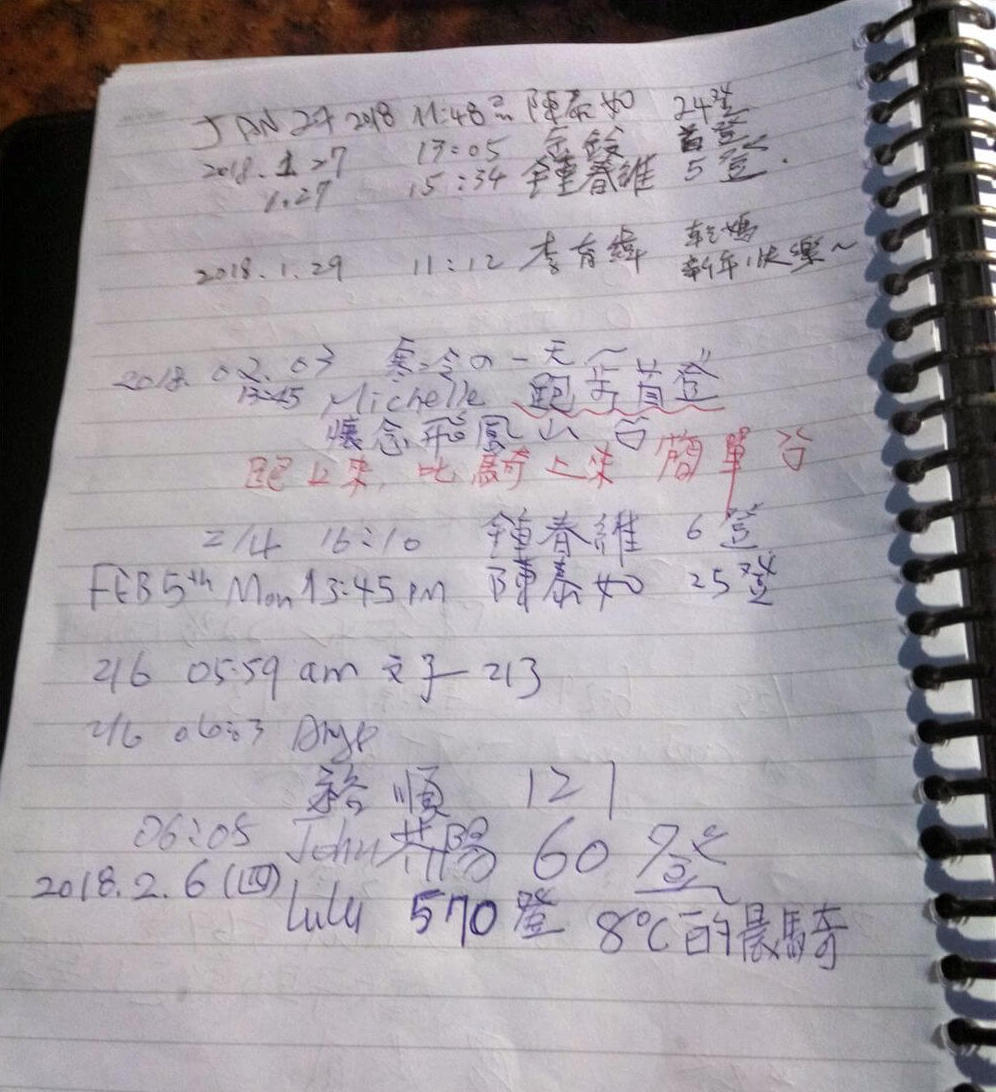 JAN 27 2018 11:48 陳泰如 24登
2018.1.27 13:05 首登
1.27 15:34 鍾春維 5登.
2018.1.29 11:12 李育緯 乾媽
新年快樂~
2018.02.03 寒冷の一天~
13:45 Michelle 跑步首登
懷念飛鳳山
跑上來,比騎上來 簡單
2/4 16:10 鍾春維 6登
FEB 5th Mon 13:45 PM 陳泰如 25登
2/6 05:59 am 213
2/6
順 121
06:05 John 60登
2018.2.6 (四)
lulu 570登 8°C的晨騎